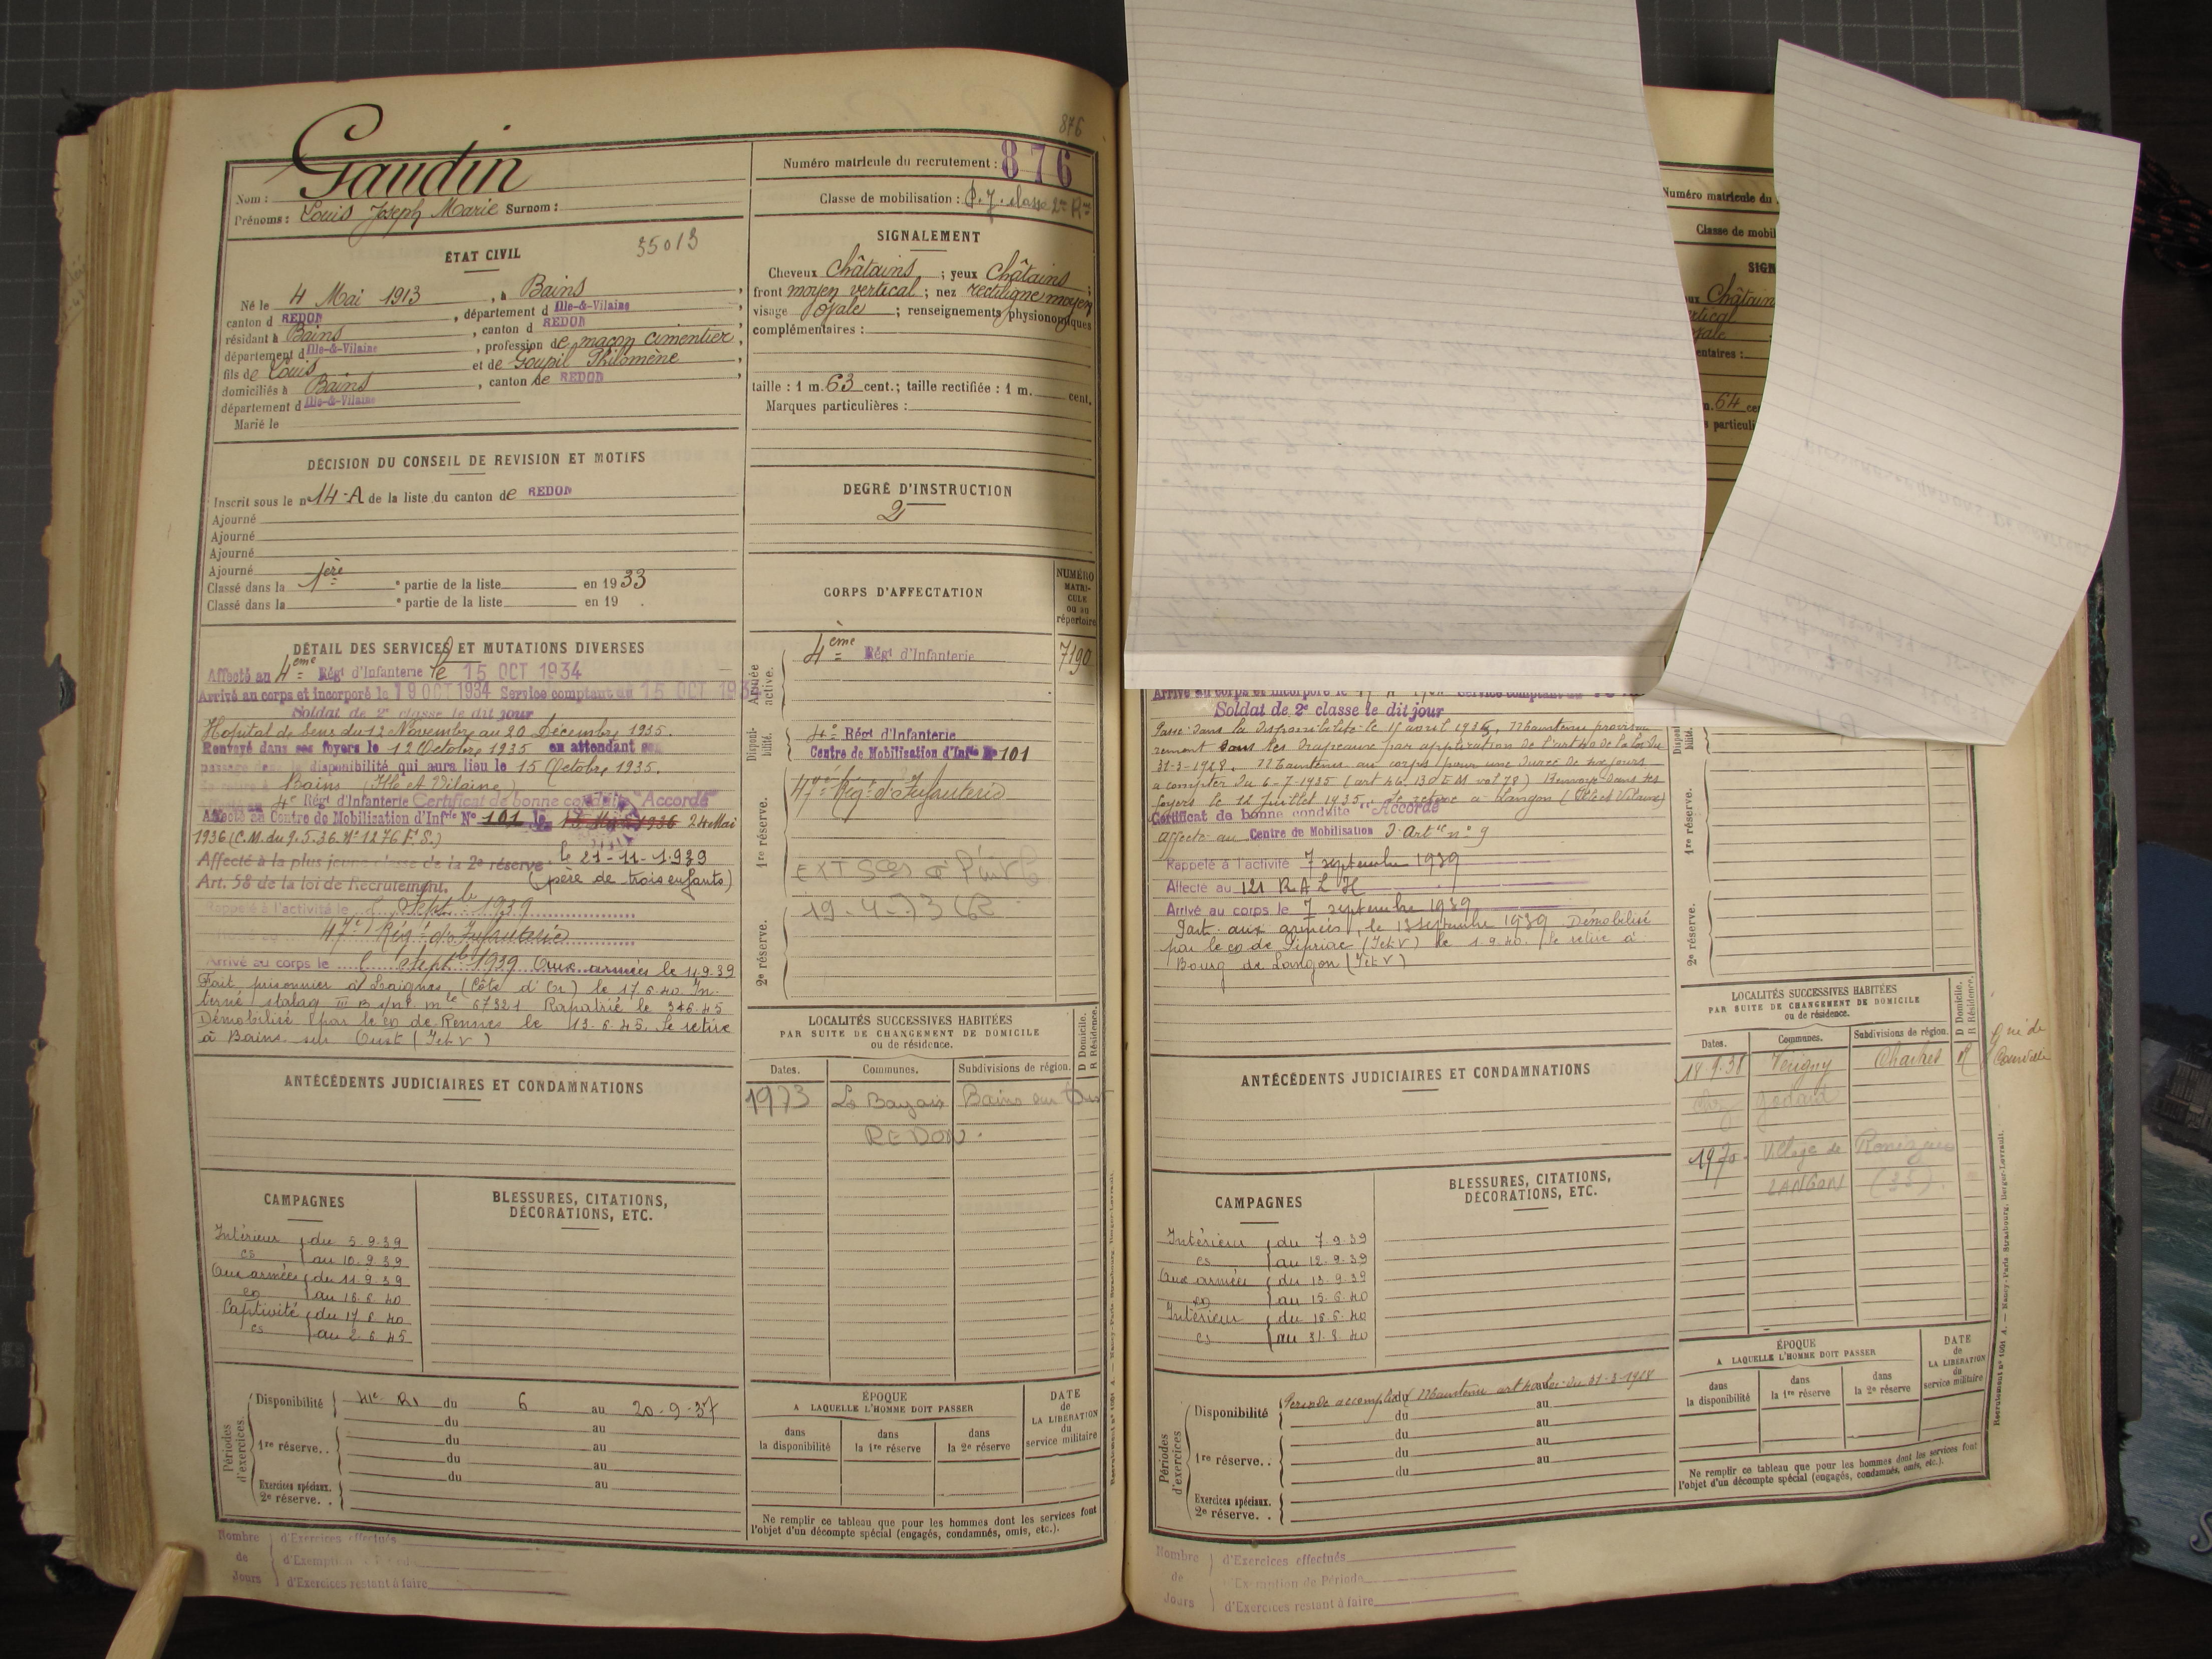 876
Gaudin
Nom :
Prénoms : Louis Joseph Marie Surnom :
ÉTAT CIVIL
35013
Né le 4 Mai 1913, à Bains,
canton d REDON, département d Ille-&-Vilaine,
résidant à Bains, canton d REDON,
département d Ille-&-Vilaine, profession de maçon cimentier,
fils de Louis et de Goupil Philomène,
domiciliés à Bains, canton de REDON,
département d Ille-&-Vilaine
Marié le
DÉCISION DU CONSEIL DE REVISION ET MOTIFS
Inscrit sous le n° 14-A de la liste du canton de REDON
Ajourné
Ajourné
Ajourné
Ajourné
Classé dans la 1ère e partie de la liste en 1933
Classé dans la e partie de la liste en 19 .
DÉTAIL DES SERVICES ET MUTATIONS DIVERSES
Affecté au 4eme Régt d'Infanterie le 15 OCT 1934
Arrivé au corps et incorporé le 19 OCT 1934 Service comptant du 15 OCT 1934
Soldat de 2e classe le dit jour
Hopital de Sens du 12 Novembre au 20 Décembre 1935.
Renvoyé dans ses foyers le 12 Octobre 1935 en attendant son
passage dans la disponibilité qui aura lieu le 15 Octobre 1935.
Se retire à Bains (Ille et Vilaine)
4e Régt d'Infanterie Certificat de bonne conduite "Accordé"
Affecté au Centre de Mobilisation d'Infrie No 101 le 24 Mai
1936 (C.M. du 9.5.36. No 1276 F.S.)
Affecté à la plus jeune classe de la 2e réserve le 21-11-1939
Art. 58 de la loi de Recrutement. (père de trois enfants)
Rappelé à l'activité le Septbre 1939
47e Régt d'Infanterie
Arrivé au corps le Septb 1939 Aux armées le 11.9.39
Fait prisonnier à Laignes (Côte d'Or) le 17.6.40 In-
terné stalag III B s/n° mle 67321 Rapatrié le 3.6.45
Démobilisé par le co de Rennes le 13.6.45. Se retire
à Bains sur Oust (I et V)
ANTÉCÉDENTS JUDICIAIRES ET CONDAMNATIONS
CAMPAGNES
Intérieur du 5.9.39
cs au 10.9.39
Aux armées du 11.9.39
au 16.6.40
Captivité du 17.6.40
cs au 2.6.45
BLESSURES, CITATIONS,
DÉCORATIONS, ETC.
Périodes d'exercices.
Disponibilité 41e RI du 6 au 20-9-37
du au
1re réserve. . du au
du au
du au
Exercices spéciaux.
2e réserve. .
Nombre de Jours
d'Exercices effectués
d'Exemption
d'Exercices restant à faire
Numéro matricule du recrutement : 876
Classe de mobilisation : P. J. classe 2me Rve
SIGNALEMENT
Cheveux Châtains ; yeux Châtains ;
front moyen vertical ; nez rectiligne moyen
visage ovale ; renseignements physionomiques
complémentaires :
taille : 1 m. 63 cent. ; taille rectifiée : 1 m. cent.
Marques particulières :
DEGRÉ D'INSTRUCTION
2
CORPS D'AFFECTATION
NUMÉRO
MATRI-
CULE
ou au
répertoire
Armée active.
4ème Régt d'Infanterie
7190
Disponibilité.
4e Régt d'Infanterie
Centre de Mobilisation d'Infie No 101
1re réserve.
47e Régt d'Infanterie
2e réserve.
19.4.73
LOCALITÉS SUCCESSIVES HABITÉES
PAR SUITE DE CHANGEMENT DE DOMICILE
ou de résidence.
D Domicile.
R Résidence.
Dates. Communes. Subdivisions de région.
1973 Bains sur Oust
REDON.
ÉPOQUE
A LAQUELLE L'HOMME DOIT PASSER
dans la disponibilité
dans la 1re réserve
dans la 2e réserve
DATE
de
LA LIBÉRATION
du
service militaire
Ne remplir ce tableau que pour les hommes dont les services font
l'objet d'un décompte spécial (engagés, condamnés, omis, etc.).
Numéro matricule du
Classe de mobil
SIGN
Châtain
vertical
ovale
entaires :
64
particuli
Soldat de 2e classe le dit jour
Passé dans la disponibilité le 15 avril 1935, Maintenu provisoi-
rement sous les drapeaux par application de l'art 40 de la loi du
31-3-1928. Maintenu au corps pour une durée de
a compter du 6-7-1935 Renvoyé dans ses
foyers le 14 Juillet 1935. Se retire à Langon (Ille et Vilaine)
Certificat de bonne conduite "Accordé"
Affecté au Centre de Mobilisation d'Artie n° 9
Rappelé à l'activité 7 septembre 1939
Affecté au 121 R A L H
Arrivé au corps le 7 septembre 1939
Part. aux armées le 13 septembre 1939. Démobilisé
par le co de Pipriac (I et V) le 1.9.40. Se retire à
Bourg de Langon (I et V)
ANTÉCÉDENTS JUDICIAIRES ET CONDAMNATIONS
CAMPAGNES
Intérieur du 7.9.39
cs au 12.9.39
Aux armées du 13.9.39
au 15.6.40
Intérieur du 16.6.40
cs au 31.8.40
BLESSURES, CITATIONS,
DÉCORATIONS, ETC.
Périodes d'exercices
Disponibilité Periode accomplie (Maintenu art 40 loi du 31-3-1928
du au
du au
1re réserve. . du au
du au
Exercices spéciaux.
2e réserve. .
Nombre de Jours
d'Exercices effectués
d'Exemption de Période
d'Exercices restant à faire
1re réserve.
2e réserve.
LOCALITÉS SUCCESSIVES HABITÉES
PAR SUITE DE CHANGEMENT DE DOMICILE
ou de résidence.
D Domicile.
R Résidence.
Dates. Communes. Subdivisions de région.
18.9.38 Verigny Chartres R
Godard
1970. Village de
LANGON (35).
ÉPOQUE
A LAQUELLE L'HOMME DOIT PASSER
dans la disponibilité
dans la 1re réserve
dans la 2e réserve
DATE
de
LA LIBÉRATION
du
service militaire
Ne remplir ce tableau que pour les hommes dont les services font
l'objet d'un décompte spécial (engagés, condamnés, omis, etc.).